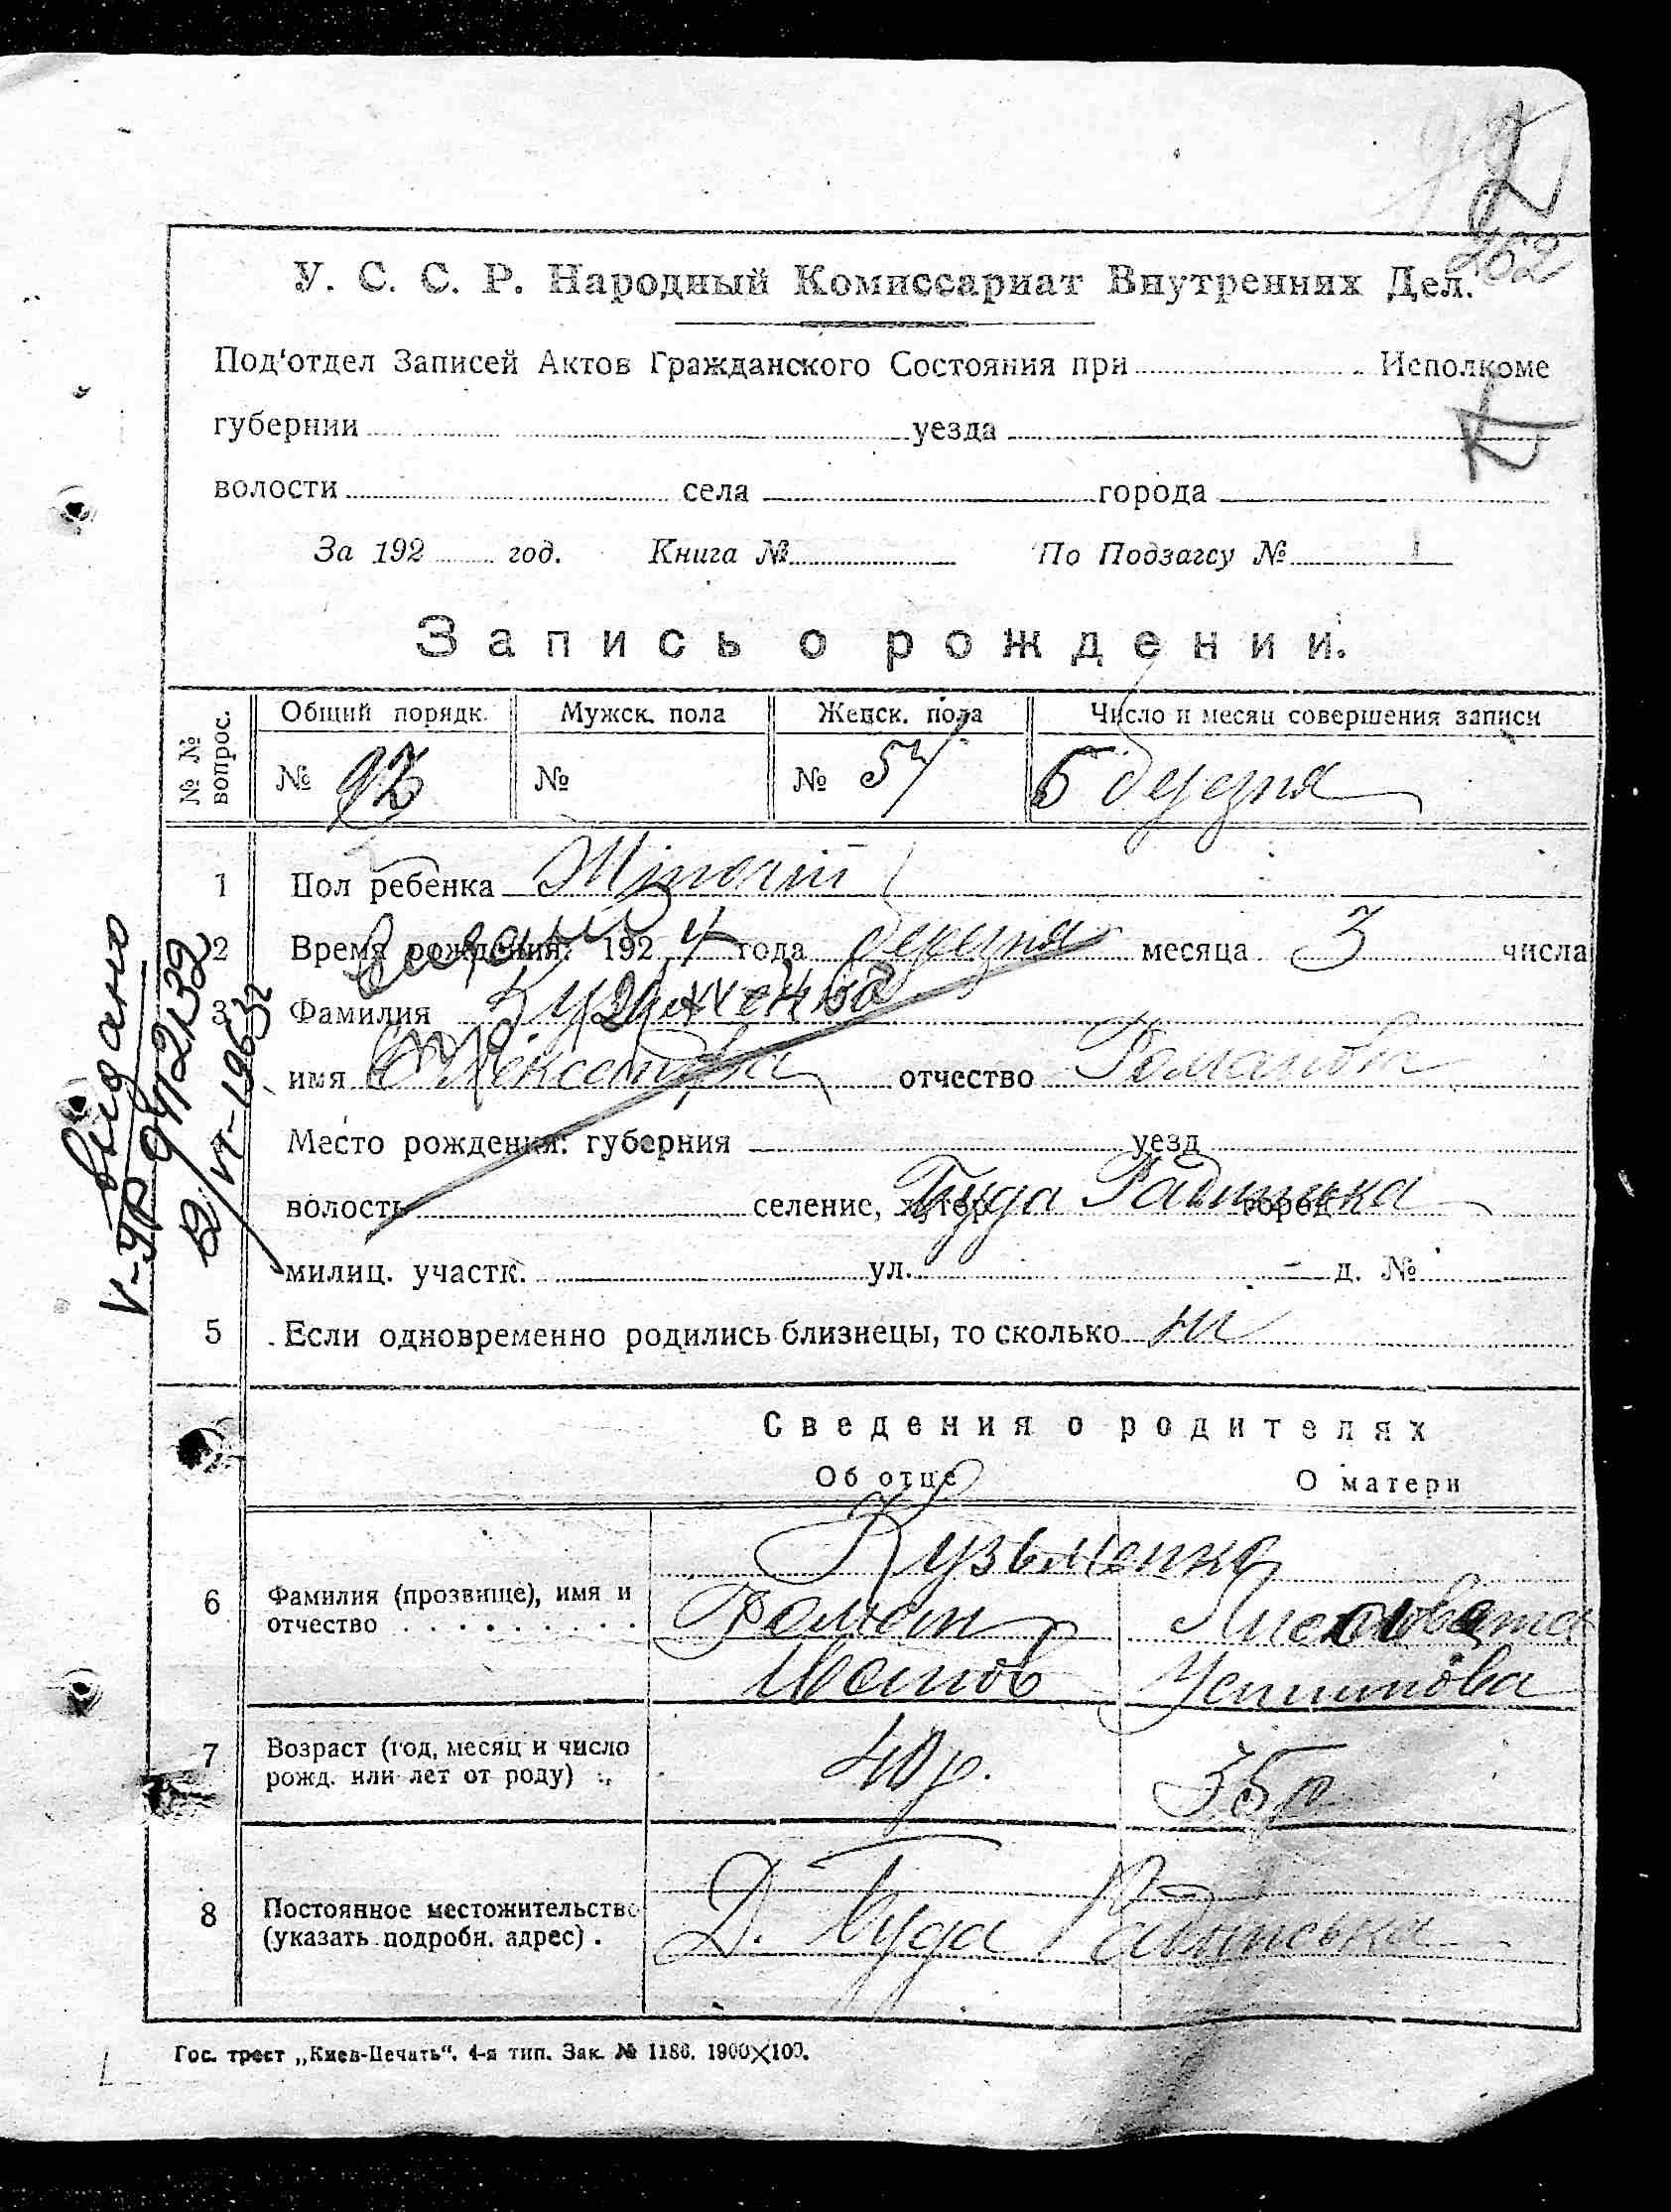 262
У. С. С. Р. Народный Комиссариат Внутренних Дел.
Под'отдел Записей Актов Гражданского Состояния при Исполкоме
губернии уезда
волости села города
За 192 год. Книга № По Подзагсу № 1
Запись о рождении.
№ № вопрос. Общий порядк. Мужск. пола Женск. пола Число и месяц совершения записи
№ № № 57 5 березня
1 Пол ребенка Жіночий
2 Время рождения: 192 4 года березня месяца 3 числа
3 Фамилия Кузьменко
имя Олександра отчество Романовна
Место рождения: губерния уезд
волость селение, хутор Буда Радинська город
милиц. участк. ул. д. №
5 Если одновременно родились близнецы, то сколько ні
Видано
Сведения о родителях
Об отце О матери
Кузьменко
6 Фамилия (прозвище), имя и отчество Роман
Устимова
7 Возраст (год, месяц и число рожд. или лет от роду) 40 р. 35 р
8 Постоянное местожительство (указать подробн. адрес). Д. Буда Радинська
Гос. трест „Киев-Печать“. 4-я тип. Зак. № 1186. 1900×100.